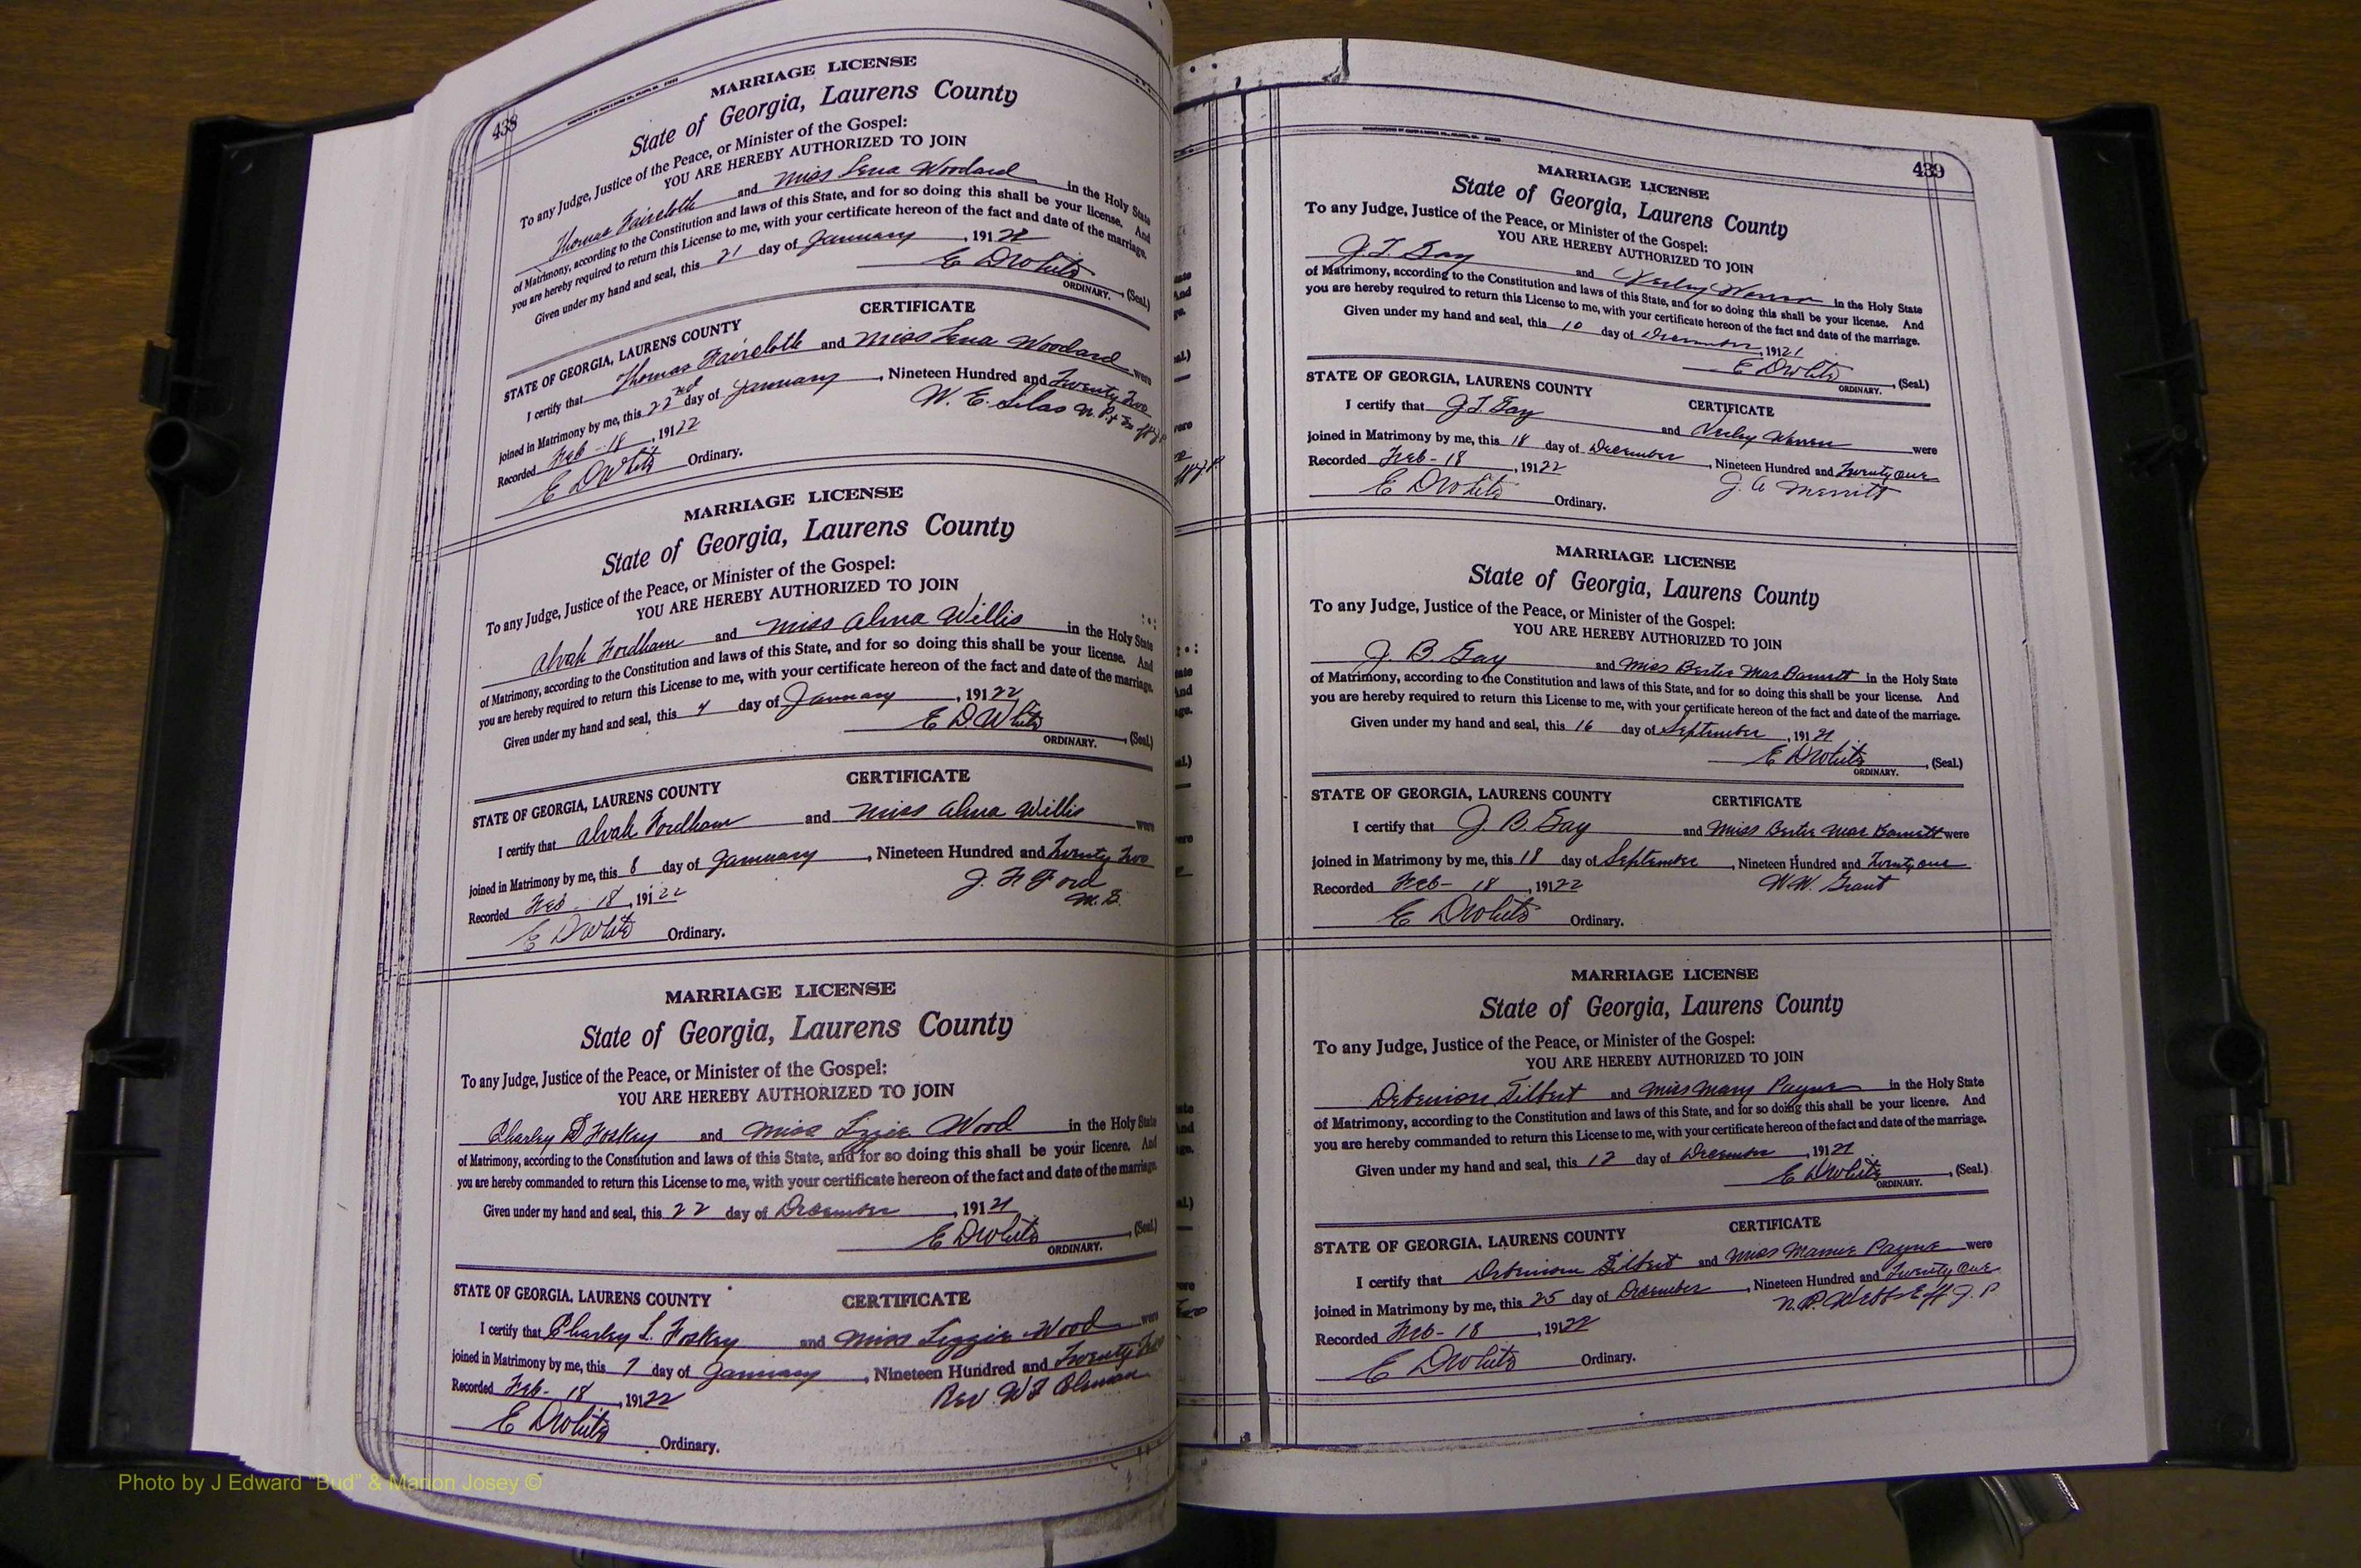 438
MARRIAGE LICENSE
State of Georgia, Laurens County
To any Judge, Justice of the Peace, or Minister of the Gospel:
YOU ARE HEREBY AUTHORIZED TO JOIN
Thomas Faircloth and Miss Lena Woodard in the Holy State
of Matrimony, according to the Constitution and laws of this State, and for so doing this shall be your license. And
you are hereby required to return this License to me, with your certificate hereon of the fact and date of the marriage.
Given under my hand and seal, this 21 day of January, 19122
E D White (Seal.)
ORDINARY.
CERTIFICATE
STATE OF GEORGIA, LAURENS COUNTY
I certify that Thomas Faircloth and Miss Lena Woodard were
joined in Matrimony by me, this 22nd day of January, Nineteen Hundred and Twenty Two
Recorded Feb - 18, 19122 W. E. Silas N. P.
E D White Ordinary.
MARRIAGE LICENSE
State of Georgia, Laurens County
To any Judge, Justice of the Peace, or Minister of the Gospel:
YOU ARE HEREBY AUTHORIZED TO JOIN
Alvah Fordham and Miss Alma Willis in the Holy State
of Matrimony, according to the Constitution and laws of this State, and for so doing this shall be your license. And
you are hereby required to return this License to me, with your certificate hereon of the fact and date of the marriage.
Given under my hand and seal, this 4 day of January, 19122
E D White (Seal.)
ORDINARY.
CERTIFICATE
STATE OF GEORGIA, LAURENS COUNTY
I certify that Alvah Fordham and Miss Alma Willis were
joined in Matrimony by me, this 8 day of January, Nineteen Hundred and Twenty Two
Recorded Feb - 18, 19122 J. F. Ford
M. G.
E D White Ordinary.
MARRIAGE LICENSE
State of Georgia, Laurens County
To any Judge, Justice of the Peace, or Minister of the Gospel:
YOU ARE HEREBY AUTHORIZED TO JOIN
Charley D Foskey and Miss Izzie Wood in the Holy State
of Matrimony, according to the Constitution and laws of this State, and for so doing this shall be your license. And
you are hereby commanded to return this License to me, with your certificate hereon of the fact and date of the marriage.
Given under my hand and seal, this 22 day of December, 19121
E D White (Seal.)
ORDINARY.
CERTIFICATE
STATE OF GEORGIA, LAURENS COUNTY
I certify that Charley L. Foskey and Miss Lizzie Wood were
joined in Matrimony by me, this 7 day of January, Nineteen Hundred and Twenty Two
Recorded Feb - 18, 19122 Rev. W F
E D White Ordinary.
439
MARRIAGE LICENSE
State of Georgia, Laurens County
To any Judge, Justice of the Peace, or Minister of the Gospel:
YOU ARE HEREBY AUTHORIZED TO JOIN
J. T. Gay and Verley Warren in the Holy State
of Matrimony, according to the Constitution and laws of this State, and for so doing this shall be your license. And
you are hereby required to return this License to me, with your certificate hereon of the fact and date of the marriage.
Given under my hand and seal, this 10 day of December, 19121
E D White (Seal.)
ORDINARY.
STATE OF GEORGIA, LAURENS COUNTY
CERTIFICATE
I certify that J T Gay and Verley Warren were
joined in Matrimony by me, this 18 day of December, Nineteen Hundred and Twenty One
Recorded Feb - 18, 19122 J. A Merritt
E D White Ordinary.
MARRIAGE LICENSE
State of Georgia, Laurens County
To any Judge, Justice of the Peace, or Minister of the Gospel:
YOU ARE HEREBY AUTHORIZED TO JOIN
J. B Gay and Miss Bertie Mae Barnett in the Holy State
of Matrimony, according to the Constitution and laws of this State, and for so doing this shall be your license. And
you are hereby required to return this License to me, with your certificate hereon of the fact and date of the marriage.
Given under my hand and seal, this 16 day of September, 19121
E D White (Seal.)
ORDINARY.
STATE OF GEORGIA, LAURENS COUNTY
CERTIFICATE
I certify that J. B. Gay and Miss Bertie Mae Barnett were
joined in Matrimony by me, this 18 day of September, Nineteen Hundred and Twenty one
Recorded Feb - 18, 19122 W. W. Grant
E D White Ordinary.
MARRIAGE LICENSE
State of Georgia, Laurens County
To any Judge, Justice of the Peace, or Minister of the Gospel:
YOU ARE HEREBY AUTHORIZED TO JOIN
Gilbert and Miss Mary Payne in the Holy State
of Matrimony, according to the Constitution and laws of this State, and for so doing this shall be your license. And
you are hereby commanded to return this License to me, with your certificate hereon of the fact and date of the marriage.
Given under my hand and seal, this 12 day of December, 19121
E D White (Seal.)
ORDINARY.
CERTIFICATE
STATE OF GEORGIA, LAURENS COUNTY
I certify that Gilbert and Miss Mamie Payne were
joined in Matrimony by me, this 25 day of December, Nineteen Hundred and Twenty One
Recorded Feb - 18, 19122 J. P
E D White Ordinary.
Photo by J Edward "Bud" & Marion Josey ©